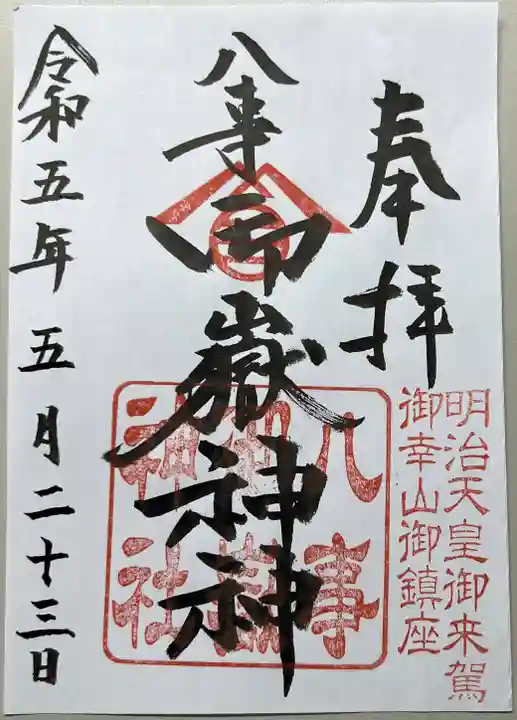 奉拝
明治天皇御来駕
御幸山御鎮座
八事御嶽神神
八事
御嶽
神社
令和五年五月二十三日